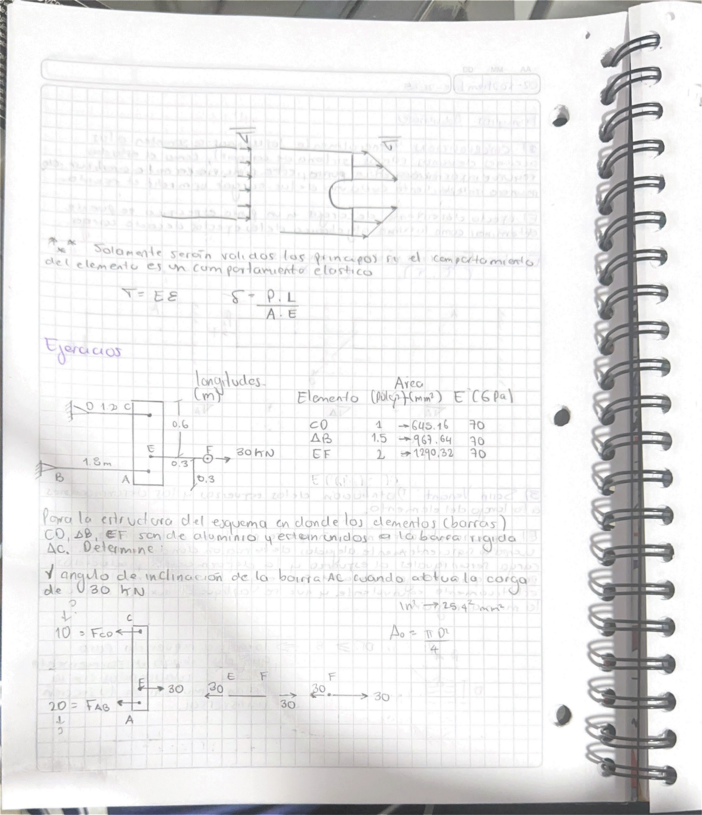 σ
σ
*** Solamente serán validos los principos si el comportamiento
del elemento es un comportamiento elastico
σ = Eε δ = P.L / A.E
Ejercicios
longitudes (m)
D 1.2 C
0.6
E F 30 kN
0.3
1.8m
0.3
B A
Area
Elemento (pulg²)(mm²) E (GPa)
CD 1 → 645.16 70
AB 1.5 → 967.64 70
EF 2 → 1290.32 70
Para la estructura del esquema en donde los elementos (barras)
CD, AB, EF son de aluminio y esten unidos a la barra rigida
AC. Determine:
γ angulo de inclinación de la barra AC cuando actua la carga
de 30 kN
1in² → 25.4² mm²
A₀ = πD² / 4
?
↓
10 = FCD ← C
E → 30
20 = FAB ← A
↓
?
E F
30 30
F
30 → 30